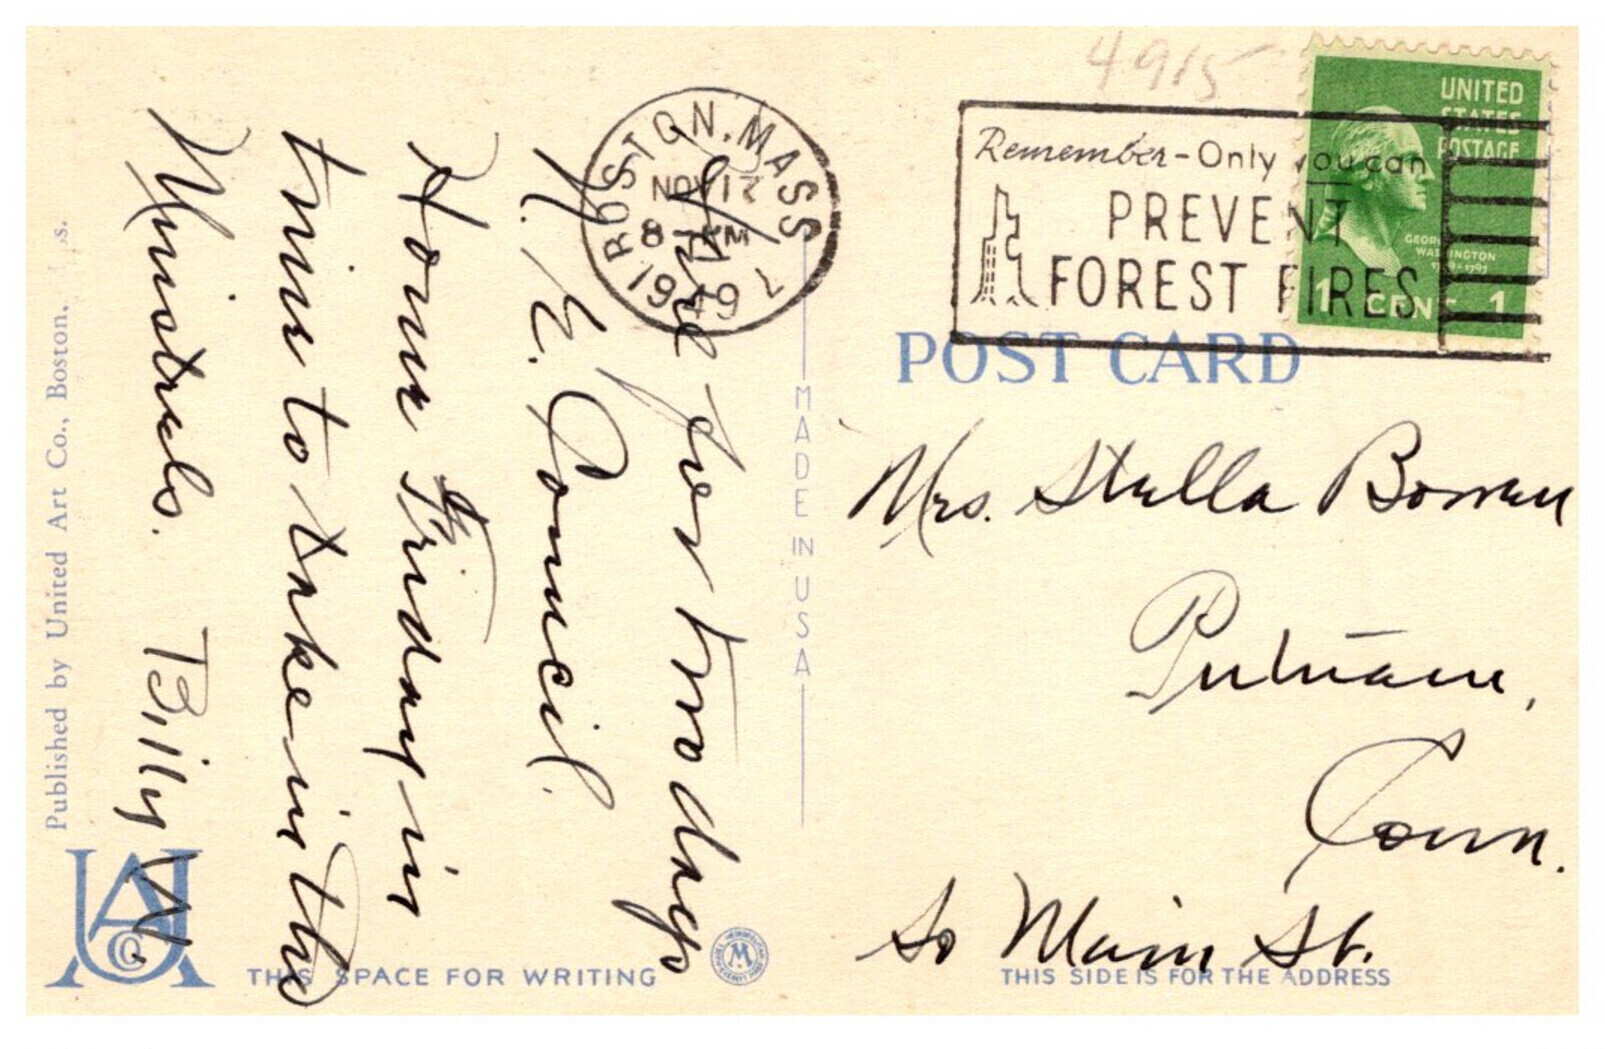 Here for two days
N. E. Council.
Home Friday in
time to take in the
Minstrels. Billy W.
Published by United Art Co., Boston,
THIS SPACE FOR WRITING
MADE IN USA
BOSTON, MASS
NOV 17
8 - PM
1949
4915
Remember - Only you can
PREVENT
FOREST FIRES
UNITED
STATES
POSTAGE
GEORGE
WASHINGTON
1 CENT 1
POST CARD
Mrs. Stella Bowen
Putnam,
Conn.
So Main St.
THIS SIDE IS FOR THE ADDRESS